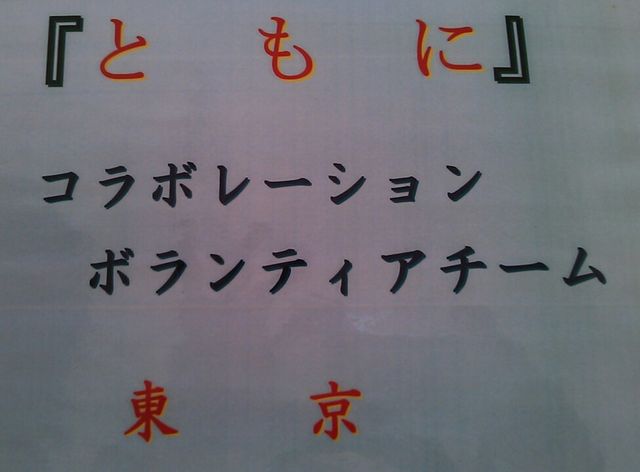 『ともに』
コラボレーション
ボランティアチーム
東京